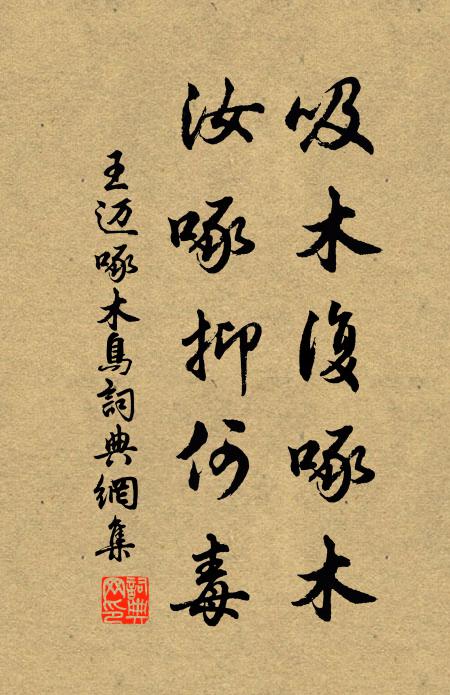 吸木復啄木
汝啄抑何毒
王迈啄木鳥詞典網集
詞典网印